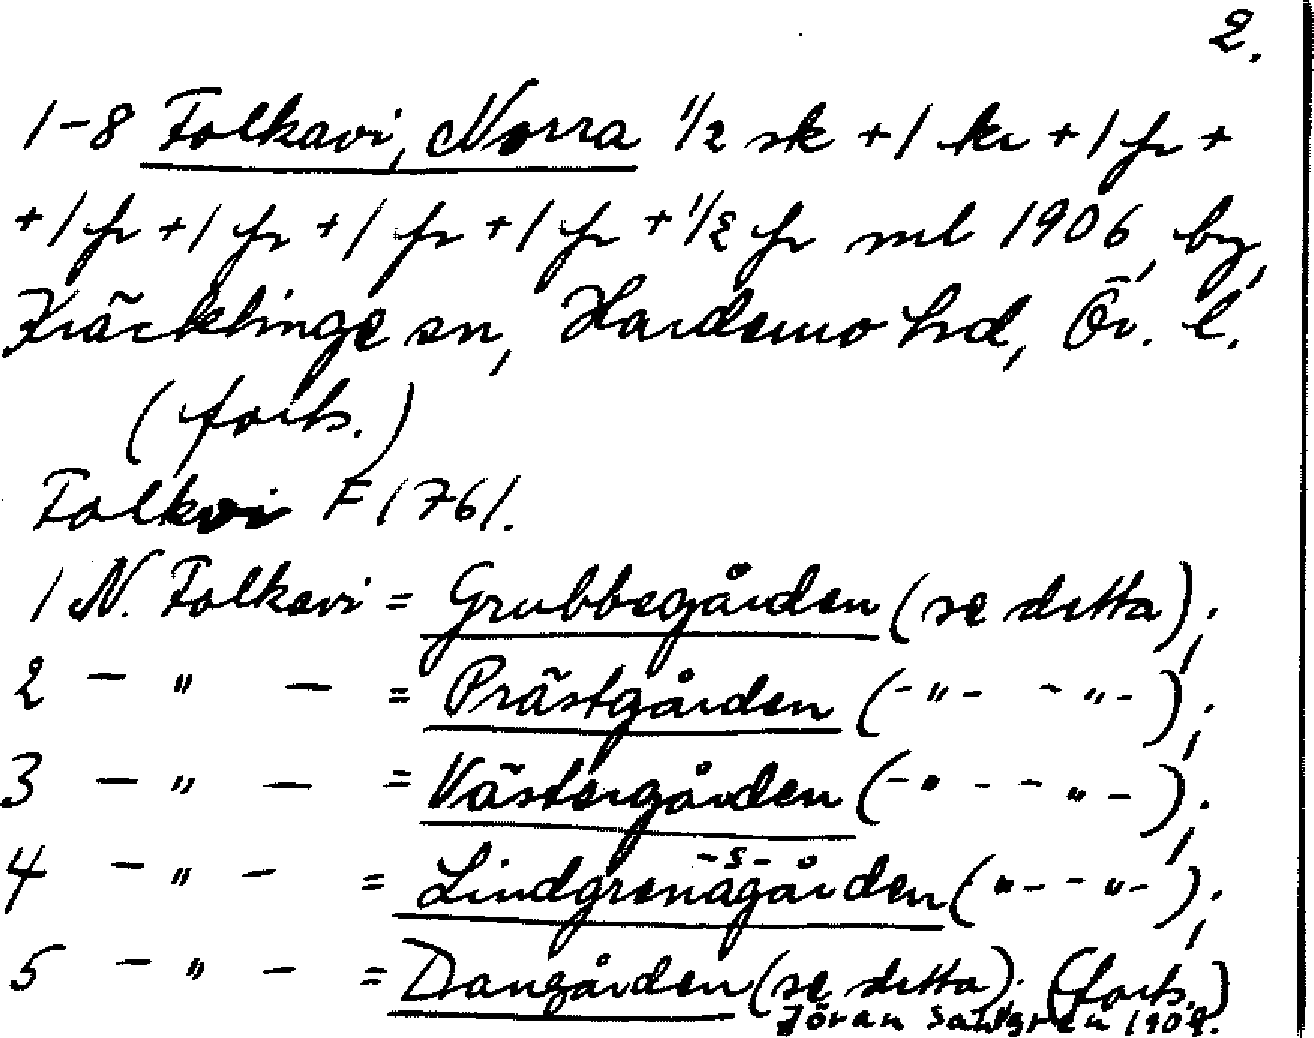 2.
1-8 Folkavi, Norra 1/2 sk + 1 kr + 1 fr +
+ 1 fr + 1 fr + 1 fr + 1 fr + 1/2 fr ml 1906, by,
Kräcklinge sn, Hardemo hd, Ör. l.
(forts.)
Folkavi F 1761.
1 N. Folkavi = Grubbegården (se detta);
2 - " - = Prästgården (-"- -"-);
3 - " - = Västergården (-"- -"-);
4 - " - = Lindgrensgården (-"- -"-);
5 - " - = Dangården (se detta); (forts.)
Jöran Sahlgren 1909.